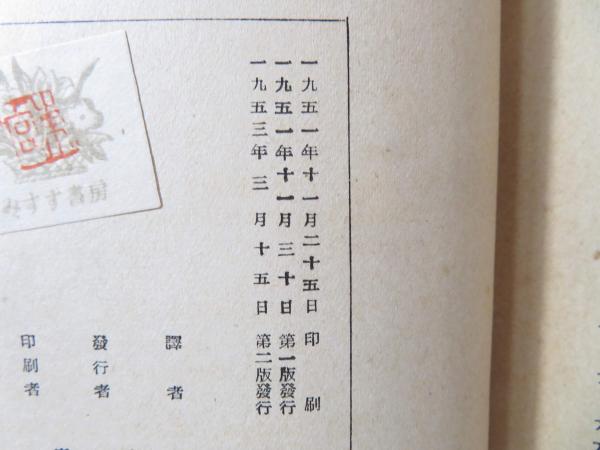 一九五一年十一月二十五日 印刷
一九五一年十一月三十日 第一版發行
一九五三年三月十五日 第二版發行
譯者
發行者
印刷者
みすず書房